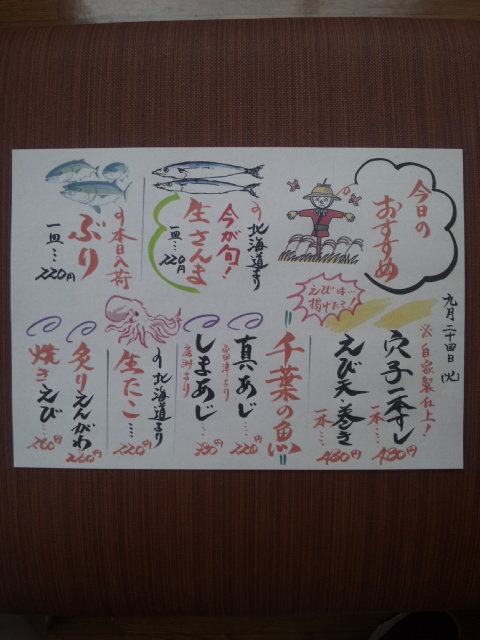 今日の
おすすめ
九月二十四日(火)
今が旬!
生さんま
一皿…220円
北海道より
本日入荷
ぶり
一皿…220円
※自家製仕上!
穴子一本すし
一本…480円
えびは
揚げたて!
えび天・巻き
一本…480円
千葉の魚
真あじ…220円
富津より
しまあじ…380円
北海道より
生たこ…220円
炙りえんがわ
260円
焼きえび…